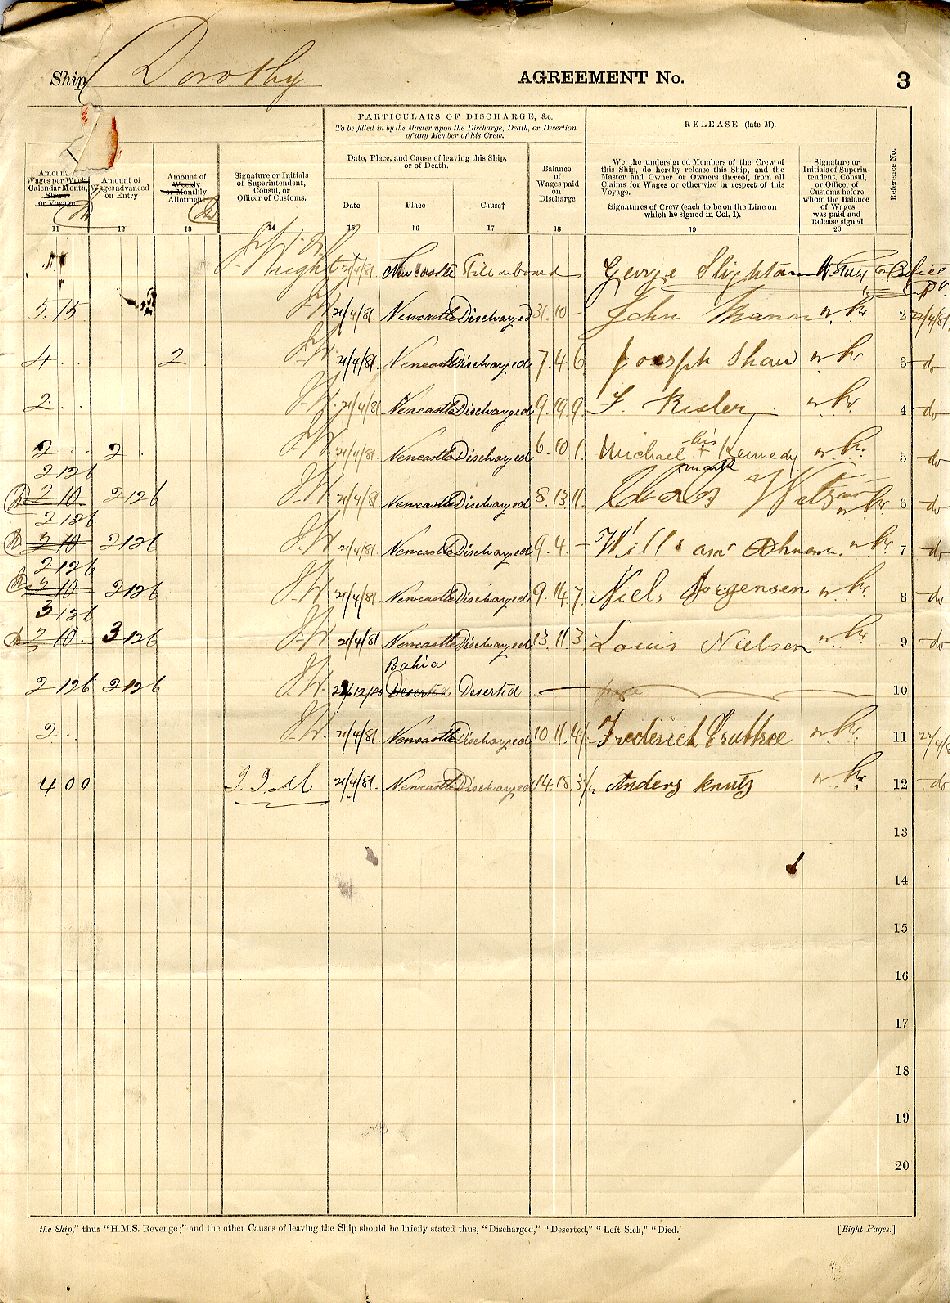 Ship Dorothy AGREEMENT No. 3
PARTICULARS OF DISCHARGE, &c.
To be filled in by the Master upon the Discharge, Death, or Desertion
of any Member of his Crew.
RELEASE (late M)
Amount of
Wages per Week,
Calendar Month,
Share
or Voyage
Amount of
Wages advanced
on Entry
Amount of
Weekly
or Monthly
Allotment
Signature or Initials
of Superintendent,
Consul, or
Officer of Customs.
Date, Place, and Cause of leaving this Ship,
or of Death.
Date Place Cause†
Balance
of
Wages paid
on
Discharge
We the undersigned Members of the Crew of
this Ship, do hereby release this Ship, and the
Master and Owner or Owners thereof, from all
Claims for Wages or otherwise in respect of this
Voyage.
Signatures of Crew (each to be on the Line on
which he signed in Col. 1).
Signature or
Initials of Superin-
tendent, Consul,
or Officer of
Customs before
whom the Balance
of Wages
was paid and
Release signed
Reference No.
11 12 13 14 15 16 17 18 19 20
Newcastle George Slightam
5.15 21/4/81 Newcastle Discharged 31.10 - John Mann 2
4 2 21/4/81 Newcastle Discharged 7.4.6 Joseph Shaw 3 do
2 21/4/81 Newcastle Discharged 9.19.9 4 do
2 2 21/4/81 Newcastle Discharged 6.10.1 Michael his + mark Kennedy 5 do
2 12 6
2 10 2 12 6 21/4/81 Newcastle Discharged 8.13.11 6 do
2 12 6
2 10 2 12 6 21/4/81 Newcastle Discharged 9.4 - 7 do
2 12 6
2 10 2 12 6 21/4/81 Newcastle Discharged 9.14.7 Niels Jorgensen 8 do
3 12 6
2 10 3 12 6 21/4/81 Newcastle Discharged 13.11.3 Louis Nielsen 9 do
Bahia
2 12 6 2 12 6 Deserted Deserted 10
2 21/4/81 Newcastle Discharged 10.11.4 Frederick Crubtree 11
4 0 0 21/4/81 Newcastle Discharged Anders Knuts 12 do
13
14
15
16
17
18
19
20
the Ship," thus "H.M.S. Revenge;" and the other Causes of leaving the Ship should be briefly stated thus, "Discharged," "Deserted," "Left Sick," "Died." [Eight Pages.]